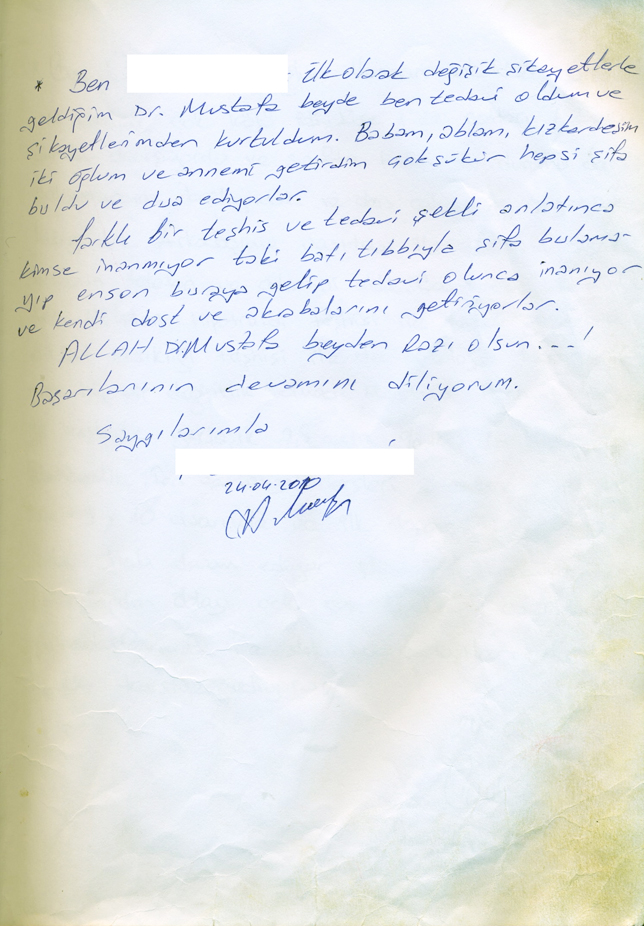 * Ben İlk olarak değişik şikayetlerle
geldiğim Dr. Mustafa beyde ben tedavi oldum ve
şikayetlerimden kurtuldum. Babam, ablam, kızkardeşim
iki oğlum ve annemi getirdim çok şükür hepsi şifa
buldu ve dua ediyorlar.
farklı bir teşhis ve tedavi şekli anlatınca
kimse inanmıyor taki batı tıbbıyla şifa bulama-
yıp enson buraya gelip tedavi olunca inanıyor
ve kendi dost ve akrabalarını getiriyorlar.
ALLAH Dr.Mustafa beyden Razı olsun...!
Başarılarının devamını diliyorum.
Saygılarımla
24.04.2010